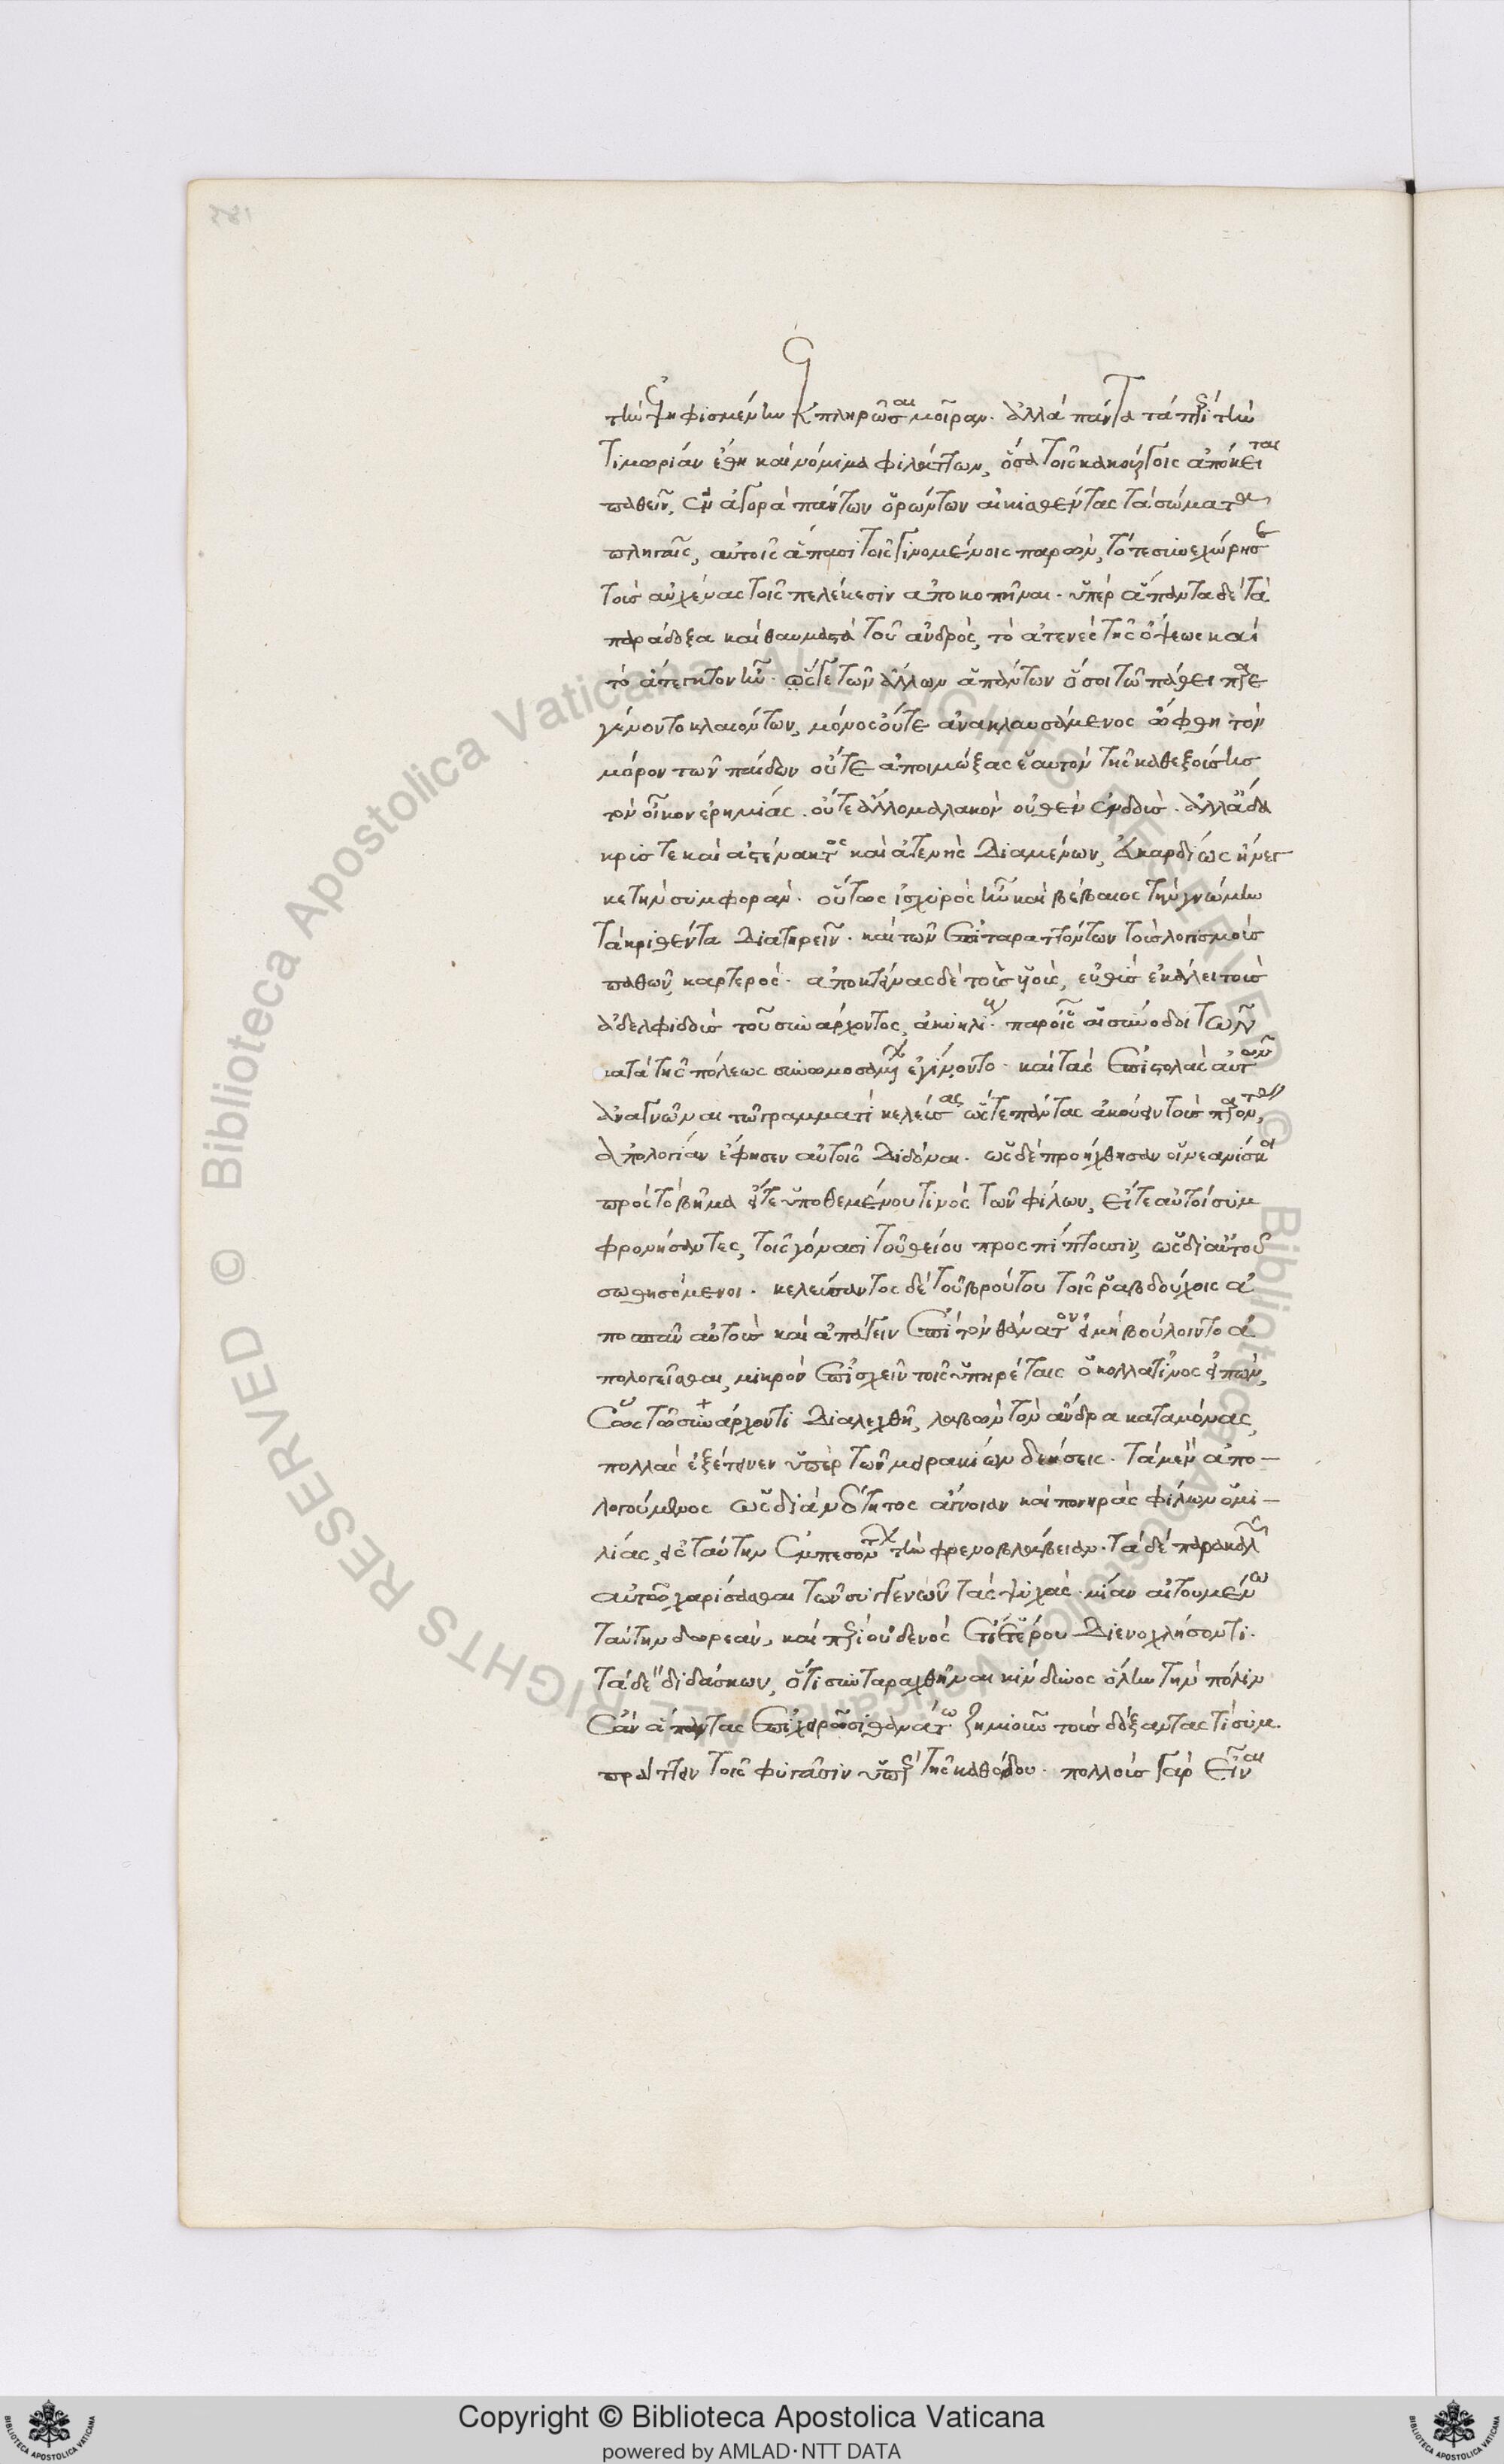 τὴν ἐψηφισμένην ἐκπληρῶσαι μοῖραν. ἀλλὰ πάντα τὰ περὶ τὴν
τιμωρίαν ἔθη καὶ νόμιμα φυλάττων, ὅσα τοῖς κακούργοις ἀπόκειται
παθεῖν, ἐν ἀγορᾷ πάντων ὁρώντων αἰκισθέντας τὰ σώματα
πληγαῖς, αὐτοῖς ἅπασι τοῖς γινομένοις παρὼν, τότε συνεχώρησε
τοὺς αὐχένας τοῖς πελέκεσιν ἀποκοπῆναι. ὑπὲρ ἅπαντα δὲ τὰ
παράδοξα καὶ θαυμαστὰ τοῦ ἀνδρὸς, τὸ ἀτενὲς τῆς ὄψεως καὶ
τὸ ἄτεγκτον ἦν. ὅς γε τῶν ἄλλων ἁπάντων ὅσοι τῷ πάθει παρε
γένοντο κλαιόντων, μόνος οὔτε ἀνακλαυσάμενος ὤφθη τὸν
μόρον τῶν παίδων οὔτε ἀποιμώξας ἑαυτὸν τῆς καθεξούσης
τὸν οἶκον ἐρημίας. οὔτε ἄλλο μαλακὸν οὐθὲν ἐνδοὺς. ἀλλ' ἄδα
κρύς τε καὶ ἀστένακτος καὶ ἀτενὴς διαμένων, εὐκαρδίως ἤνεγ
κε τὴν συμφοράν. οὕτως ἰσχυρὸς ἦν καὶ βέβαιος τὴν γνώμην
τὰ κριθέντα διατηρεῖν. καὶ τῶν ἐπιταραττόντων τοὺς λογισμοὺς
παθῶν καρτερός. ἀποκτείνας δὲ τοὺς υἱοὺς, εὐθὺς ἐκάλει τοὺς
ἀδελφιδοὺς τοῦ συνάρχοντος, ἀκυλίους. παρ' οἷς αἱ σύνοδοι τῶν
κατὰ τῆς πόλεως συνωμοσαμένων ἐγίνοντο. καὶ τὰς ἐπιστολὰς αὐτῶν
ἀναγνῶναι τῷ γραμματεῖ κελεύσας ὥστε πάντας ἀκούειν τοὺς παρόντας,
ἀπολογίαν ἔφησεν αὐτοῖς διδόναι. ὡς δὲ προήχθησαν οἱ νεανίσκοι
πρὸς τὸ βῆμα εἴτε ὑποθεμένου τινὸς τῶν φίλων, εἴτε αὐτοὶ συμ
φρονήσαντες, τοῖς γόνασι τοῦ θείου προσπίπτουσιν, ὡς δι' αὐτοῦ
σωθησόμενοι. κελεύσαντος δὲ τοῦ βρούτου τοῖς ῥαβδούχοις ἀ
ποσπᾶν αὐτοὺς καὶ ἀπάγειν ἐπὶ τὸν θάνατον εἰ μὴ βούλοιντο ἀ
πολογεῖσθαι, μικρὸν ἐπισχεῖν τοῖς ὑπηρέταις ὁ κολλατῖνος εἰπὼν,
ἕως τῷ συνάρχοντι διαλεχθῇ, λαβὼν τὸν ἄνδρα καταμόνας,
πολλὰς ἐξέτεινεν ὑπὲρ τῶν μειρακίων δεήσεις. τὰ μὲν ἀπο-
λογούμενος ὡς διὰ νεότητος ἄγνοιαν καὶ πονηρὰς φίλων ὁμι-
λίας, εἰς ταύτην ἐμπεσόντων τὴν φρενοβλάβειαν. τὰ δὲ παρακαλῶν
αὐτῷ χαρίσασθαι τῶν συγγενῶν τὰς ψυχὰς. μίαν αἰτουμένῳ
ταύτην δωρεάν, καὶ περὶ οὐδενὸς ἔτι ἑτέρου διενοχλήσοντι.
τὰ δὲ διδάσκων, ὅτι συνταραχθῆναι κίνδυνος ὅλην τὴν πόλιν
ἐὰν ἅπαντας ἐπιχειρῶσι θανάτῳ ζημιοῦν τοὺς δόξαντάς τι συμ
πράττειν τοῖς φυγάσιν ὑπὲρ τῆς καθόδου. πολλοὺς γὰρ εἶναι
Copyright © Biblioteca Apostolica Vaticana
powered by AMLAD·NTT DATA